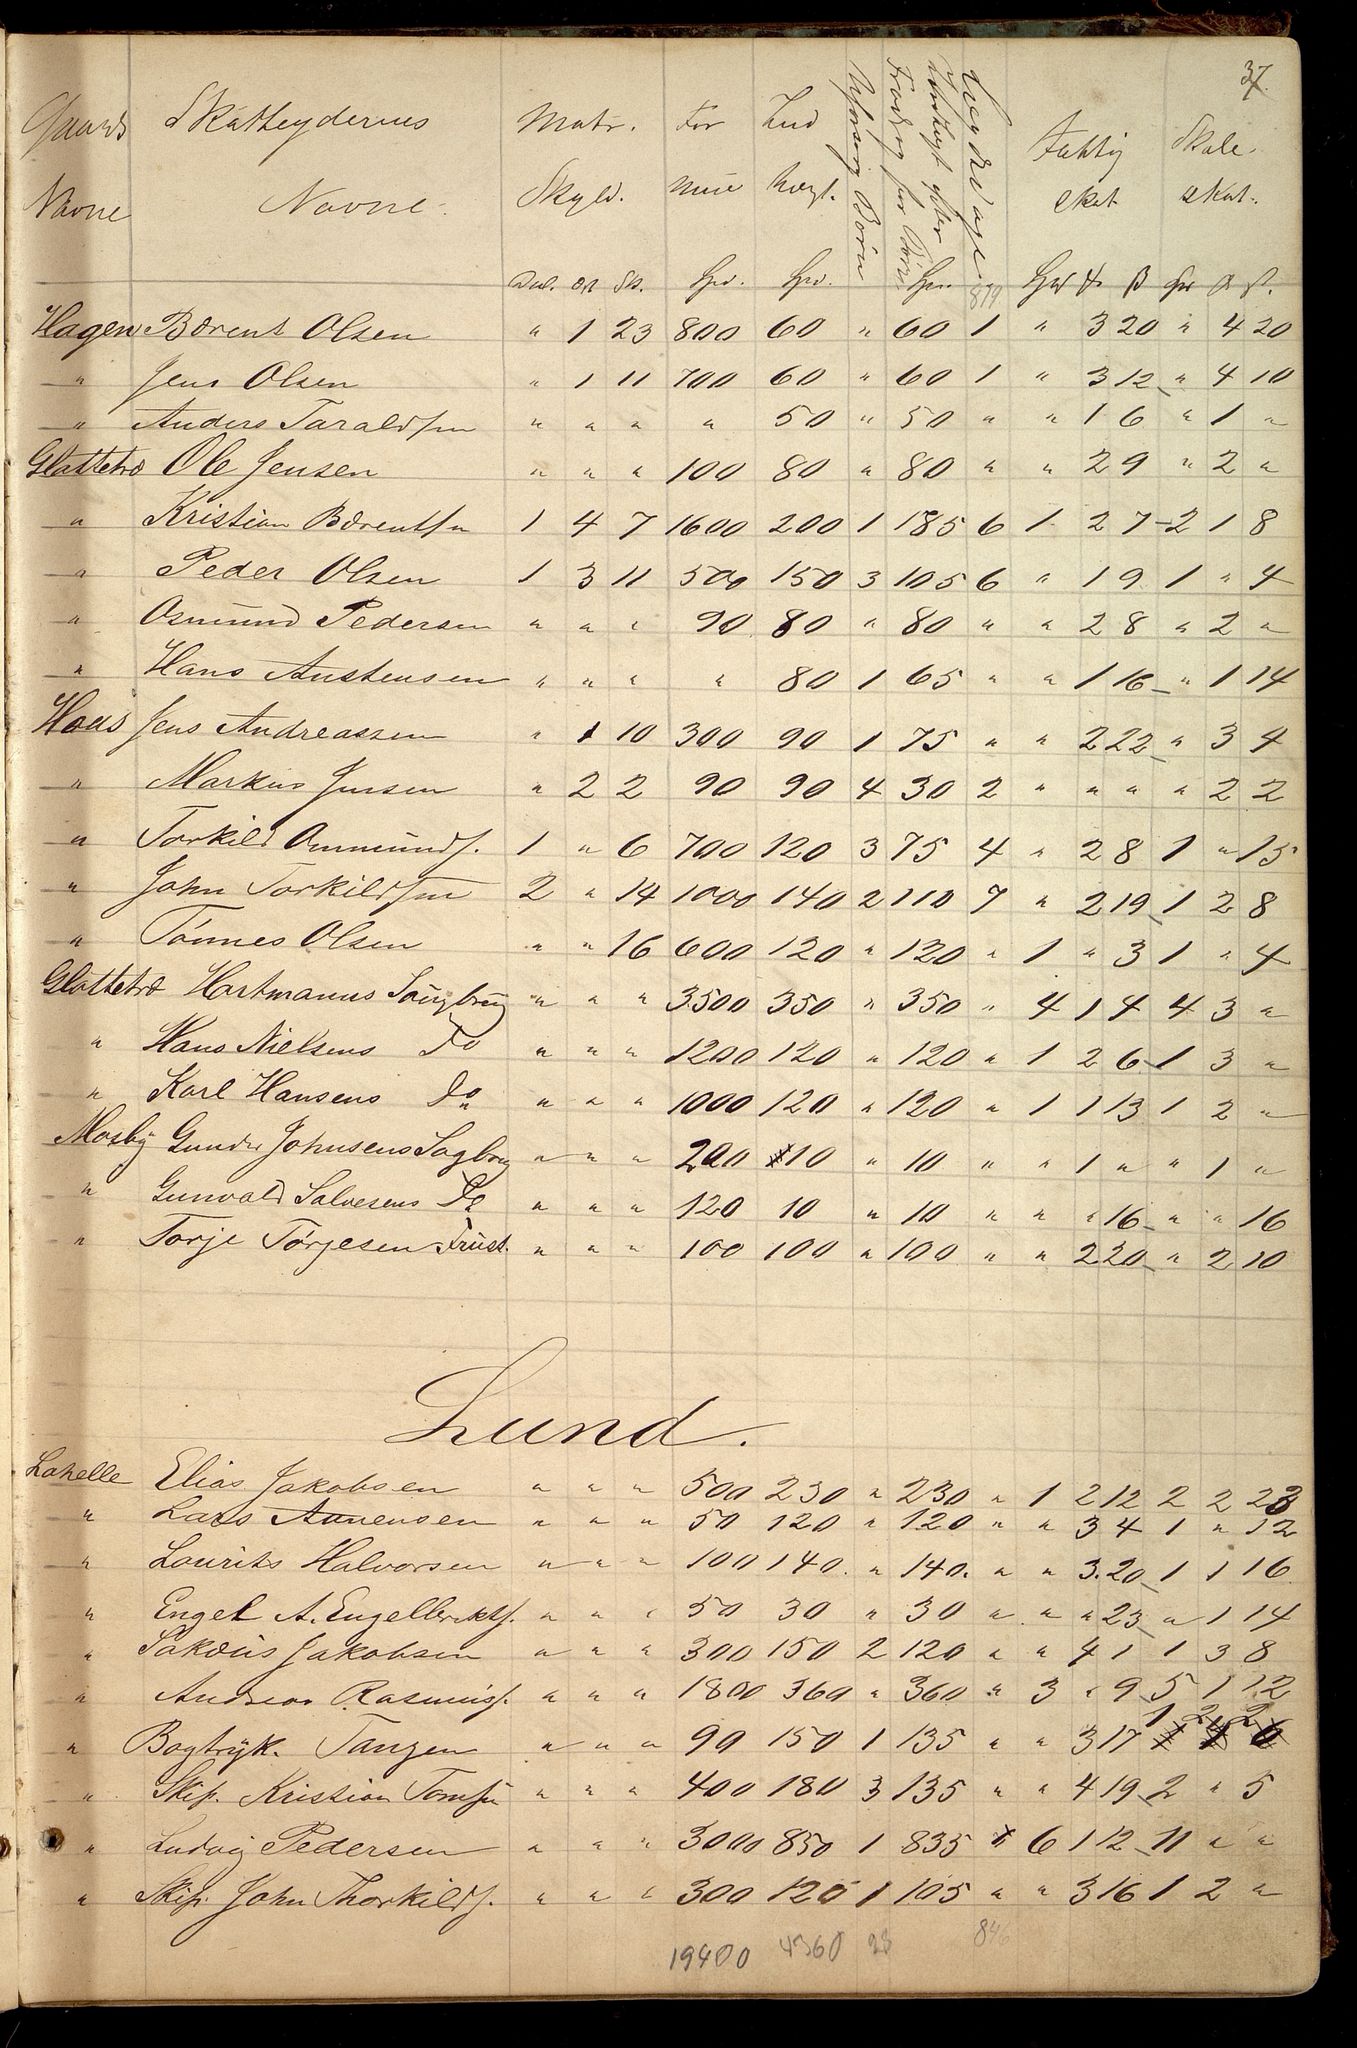 37.
Gaards Skatteydernes Matr. For Ind Uforsørg. Børn Indtægt efter Fradrag for Børn Lægdsdage Fattig Skole
Navne Navne. Skyld. mue tægt. skat skat.
Dal. Ort Sk. Spd. Spd. Spd. 819 Spd ß Spd
Hagen Bærent Olsen " 1 23 800 60 " 60 1 " 3 20 " 4 20
" Jens Olsen " 1 11 700 60 " 60 1 " 3 12 " 4 10
" Anders Taraldsen " " " " 50 " 50 " " 1 6 " 1 "
Glattetræ Ole Jensen " " " 100 80 " 80 " " 2 9 " 2 "
" Kristian Bærentsen 1 4 7 1600 200 1 185 6 1 2 7 2 1 8
" Peder Olsen 1 3 11 500 150 3 105 6 " 1 9 1 " 4
" Osmund Pedersen " " " 90 80 " 80 " " 2 8 " 2 "
" Hans Austensen " " " " 80 1 65 " " 1 16 " 1 14
Haus Jens Andreassen " 1 10 300 90 1 75 " " 2 22 " 3 4
" Markus Jensen " 2 2 90 90 4 30 2 " " " " 2 2
" Torkild Ommunds. 1 " 6 700 120 3 75 4 " 2 8 1 " 15
" John Torkildsen 2 " 14 1000 140 2 110 7 " 2 19 1 2 8
" Tönnes Olsen " " 16 600 120 " 120 " 1 " 3 1 " 4
Glattetræ Hartmanns Saugbrug " " " 3500 350 " 350 " 4 1 4 4 3 "
" Hans Nielsens Do " " " 1200 120 " 120 " 1 2 6 1 3 "
" Karl Hansens Do " " " 1000 120 " 120 " 1 1 13 1 2 "
Mosby Gunder Johnsens Sagbrug " " " 200 10 " 10 " " 1 " " 1 "
" Gunvald Salvesens Do " " " 120 10 " 10 " " " 16 " " 16
" Torje Törjesen Trust. " " " 100 100 " 100 " " 2 20 " 2 10
Lund.
Lahelle Elias Jakobsen " " " 500 230 " 230 " 1 2 12 2 2 23
" Lars Aanensen " " " 50 120 " 120 " " 3 4 1 " 12
" Lourits Halvorsen " " " 100 140. " 140. " " 3.20 1 1 16
" Engel A. Engelbrekts. " " " 50 30 " 30 " " " 23 " 1 14
" Sakæus Jakobsen " " " 300 150 2 120 " " 4 1 1 3 8
" Andreas Rasmuss. " " " 1800 360 " 360 " 3 " 9 5 1 12
" Bogtryk. Tangen " " " 90 150 1 135 " " 3 17 1 2 2
" Skip. Kristian Tomsen " " " 400 180 3 135 " " 4 19 2 " 5
" Ludvig Pedersen " " " 3000 850 1 835 " 6 1 12 11 " "
" Skip. John Thorkilds. " " " 300 120 1 105 " " 3 16 1 2 "
19400 4360 23 846